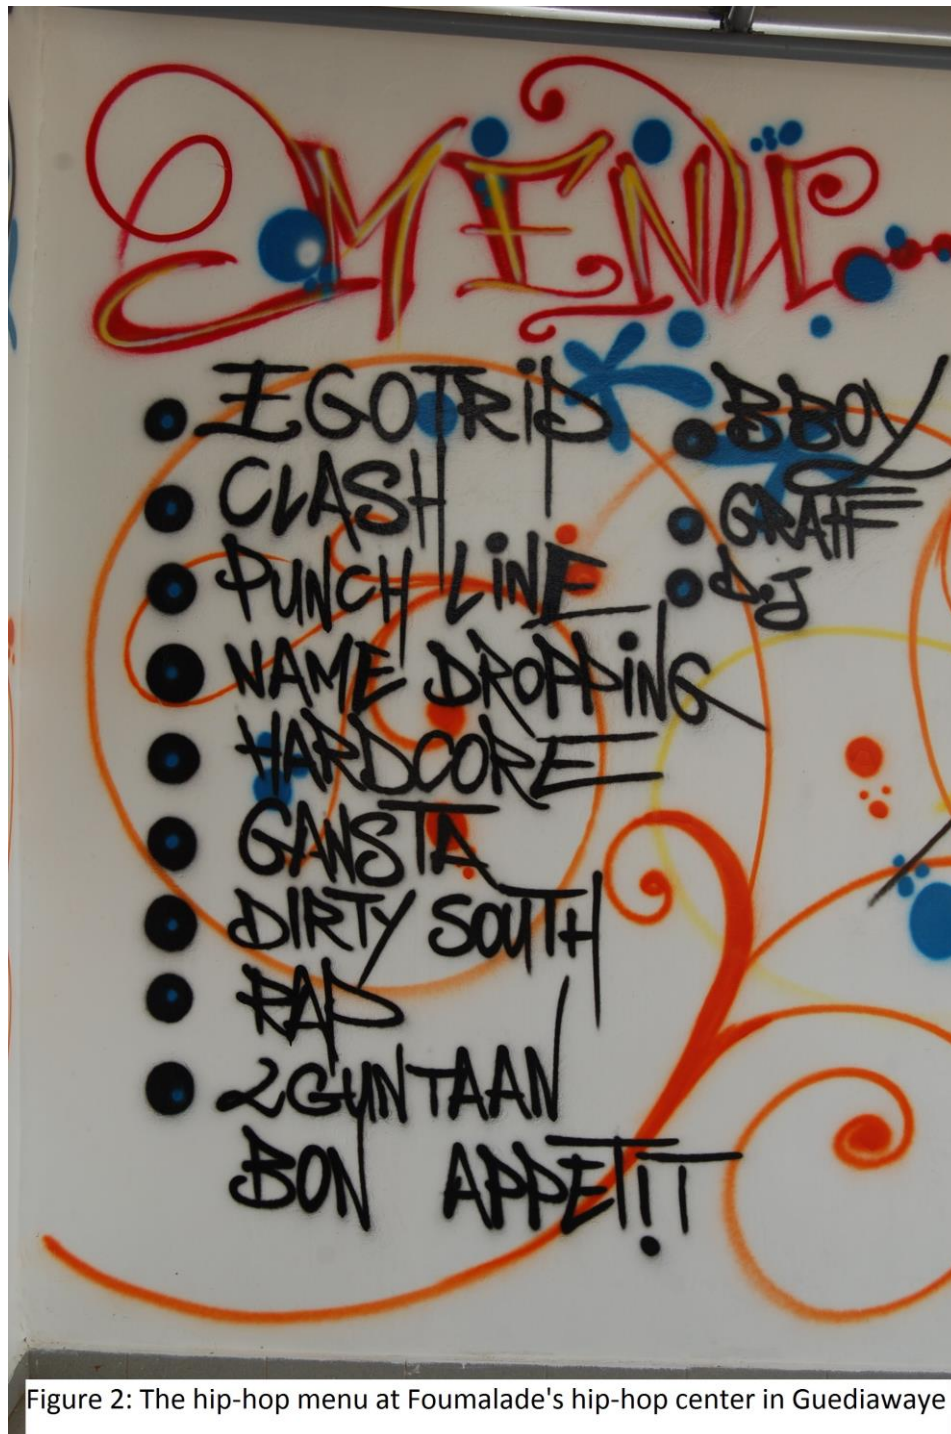 MENU...
EGOTRIP
CLASH
PUNCH LINE
NAME DROPPING
HARDCORE
GANSTA
DIRTY SOUTH
RAP
2GUNTAAN
BON APPETIT
BBOY
GRAFF
D.J
Figure 2: The hip-hop menu at Foumalade's hip-hop center in Guediawaye